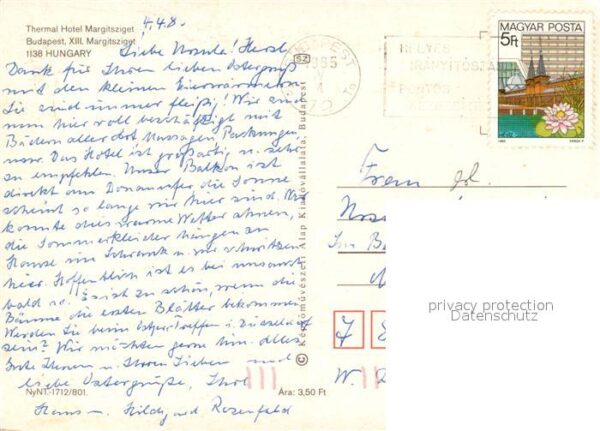 Thermal Hotel Margitsziget
Budapest, XIII. Margitsziget
1138 HUNGARY
4.4.8.
Liebe Ursula! Herzl.
Dank für Ihren lieben Ostergruß
mit den kleinen Eierwärmern
Sie sind immer fleißig! Wir sind
nun hier voll beschäftigt mit
Bädern aller Art Massagen Packungen
usw. Das Hotel ist großartig u. sehr
zu empfehlen. Unser Balkon ist
direkt am Donauufer die Sonne
scheint so lange wir hier sind. Wer
konnte dies warme Wetter ahnen,
die Sommerkleider hängen zu
Hause im Schrank u. wir schwitzen
hier. Hoffentlich ist es bei uns auch
bald so. Es ist zu schön, wenn die
Bäume die ersten Blätter bekommen
Werden Sie beim treffen i. Düsseldorf
sein? Wir möchten gerne hin. Alles
Gute Ihnen u. Ihren Lieben und
liebe Ostergrüße, Ihre
Hans u. Hildegard Rosenfeld
NyNT-1712/801.
Ára: 3,50 Ft
© Képzőművészeti Alap Kiadóvállalata, Budapest
BUDAPEST
SZ
1985
72
HELYES
IRÁNYÍTÓSZÁ
PONTOS
MAGYAR POSTA
5Ft
Frau
Im B
W.
privacy protection
Datenschutz